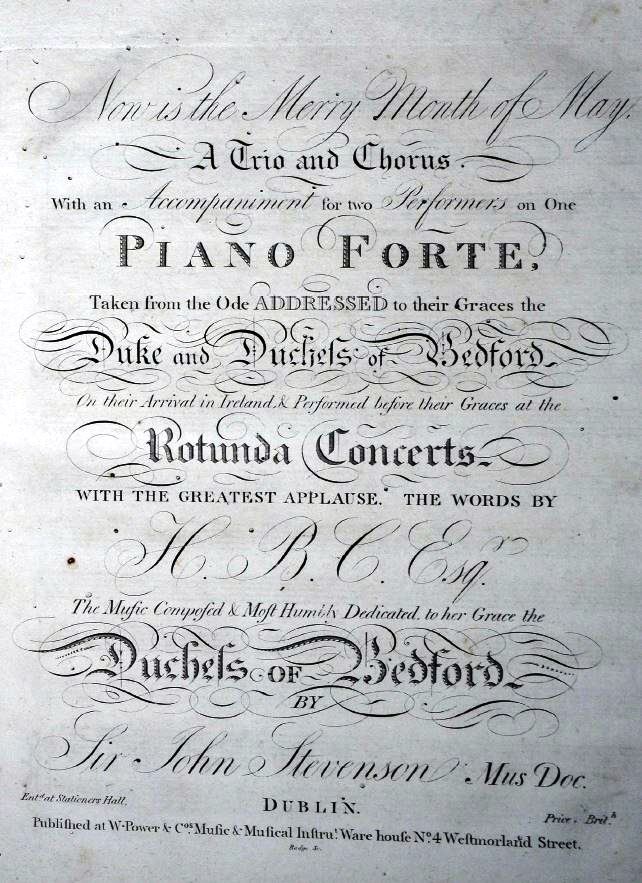 Now is the Merry Month of May.
A Trio and Chorus.
With an Accompaniment for two Performers on One
PIANO FORTE,
Taken from the Ode ADDRESSED to their Graces the
Duke and Ducheſs of Bedford
On their Arrival in Ireland, & Performed before their Graces at the
Rotunda Concerts
WITH THE GREATEST APPLAUSE. THE WORDS BY
H. B. C. Esqr.
The Muſic Compoſed & Moſt Humbly Dedicated to her Grace the
Ducheſs OF Bedford
BY
Sir John Stevenson Mus Doc.
Entd. at Stationers Hall. DUBLIN. Price. Brit.h
Publiſhed at W. Power & Cos. Muſic & Muſical Inſtrut. Ware houſe No. 4 Weſtmorland Street.